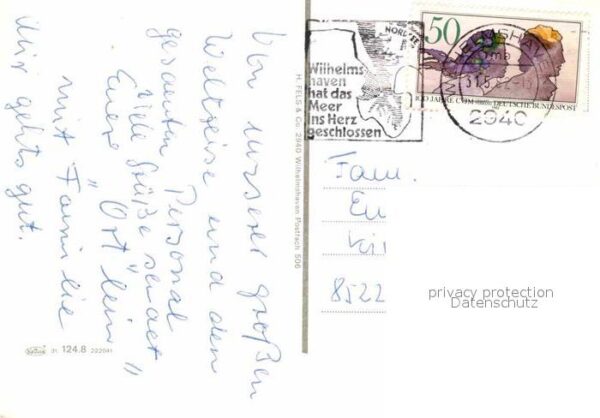 Von unserer großen
Weltreise und dem
gesamten Personal
viele Grüße sendet
Euer "Ort"
mit Familie
Mir gehts gut.
H. FELS & Co. 2940 Wilhelmshaven Postfach 506
124.8
NORDSEE
Wilhelms
haven
hat das
Meer
ins Herz
geschlossen
50
100 JAHRE CVJM
DEUTSCHE BUNDESPOST
WILHELMSHAVEN
2940
Fam.
8522
privacy protection
Datenschutz